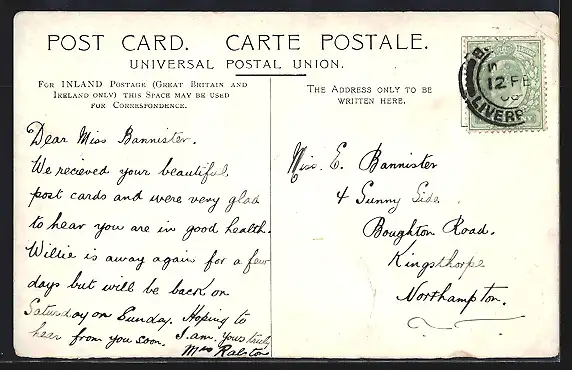 POST CARD. CARTE POSTALE.
UNIVERSAL POSTAL UNION.
FOR INLAND POSTAGE (GREAT BRITAIN AND
IRELAND ONLY) THIS SPACE MAY BE USED
FOR CORRESPONDENCE.
THE ADDRESS ONLY TO BE
WRITTEN HERE.
12 FE
LIVERP
Dear Miss Bannister.
We recieved your beautiful
post cards and were very glad
to hear you are in good health.
Willie is away again for a few
days but will be back on
Saturday or Sunday. Hoping to
hear from you soon. I am yours truly
Mrs Ralston
Miss. E. Bannister
4 Sunny Side.
Boughton Road.
Kingsthorpe
Northampton.